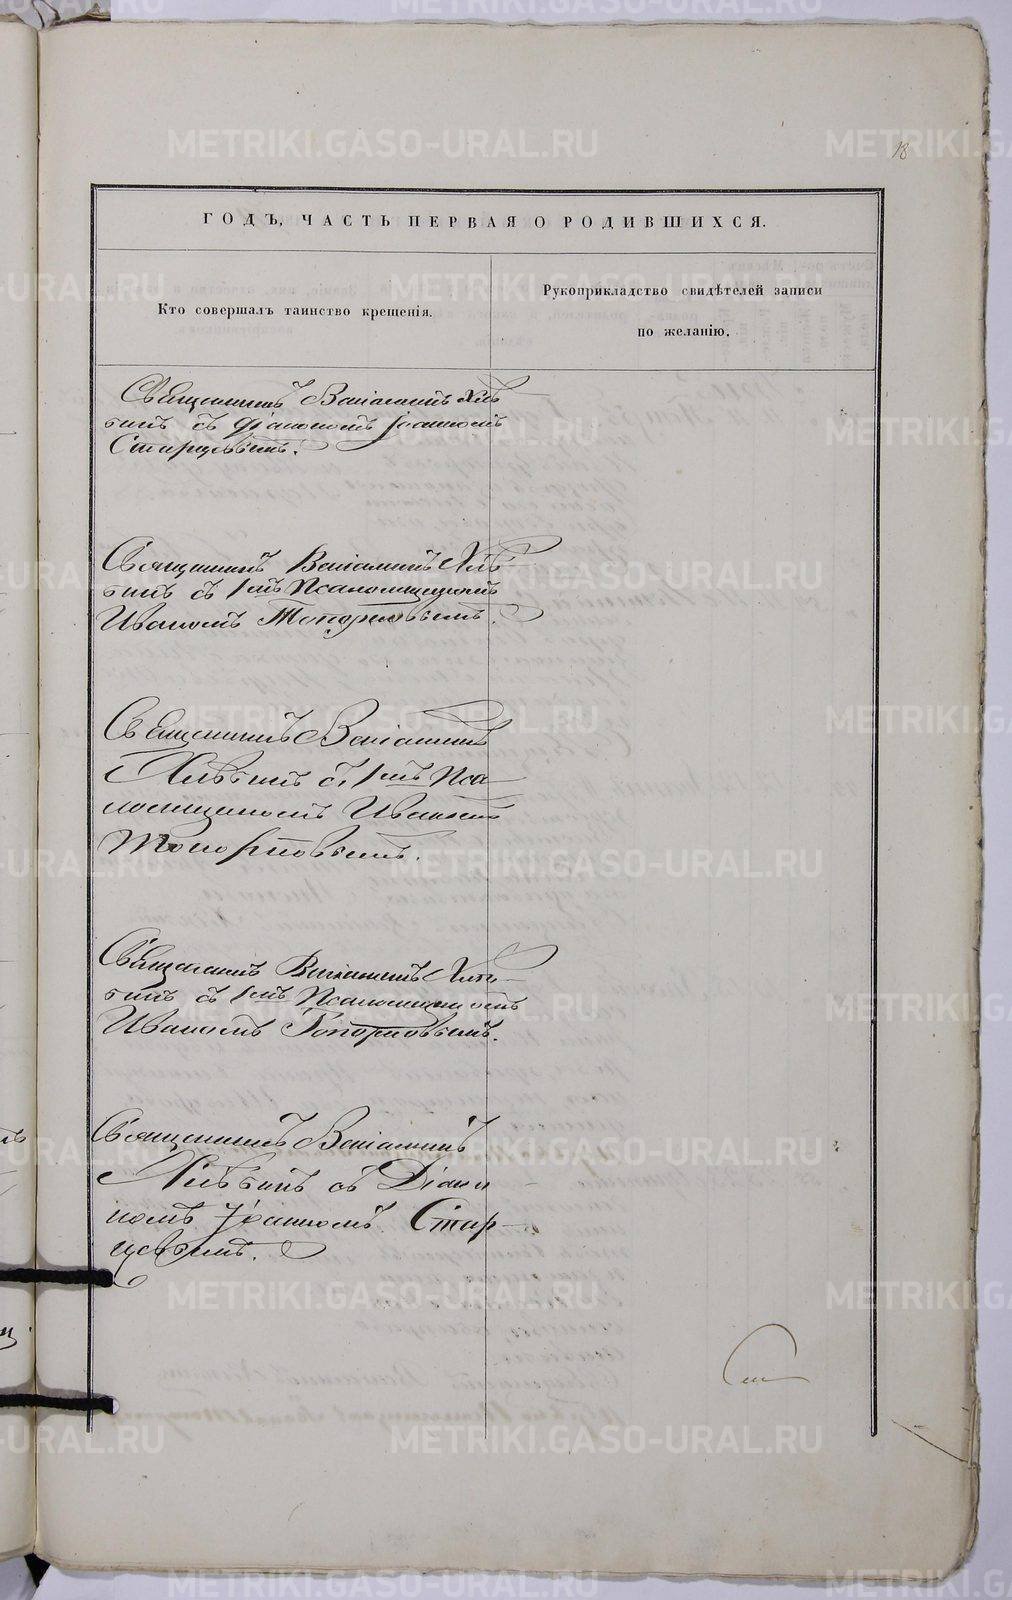 18
ГОДЪ, ЧАСТЬ ПЕРВАЯ О РОДИВШИХСЯ.
Кто совершалъ таинство крещенія.
Рукоприкладство свидѣтелей записи
по желанію.
Священникъ Веніаминъ Хлѣ
бинъ съ Діакономъ Іоанномъ
Старцевымъ.
Священникъ Веніаминъ Хлѣ
бинъ съ 1мъ Псаломщикомъ
Иваномъ Топорковымъ.
Священникъ Веніаминъ
Хлѣбинъ съ 1мъ Пса
ломщикомъ Иваномъ
Топорковымъ.
Священникъ Веніаминъ Хлѣ
бинъ съ 1мъ Псаломщикомъ
Иваномъ Топорковымъ.
Священникъ Веніаминъ
Хлѣбинъ съ Діако
номъ Іоанномъ Стар
цевымъ.
METRIKI.GASO-URAL.RU